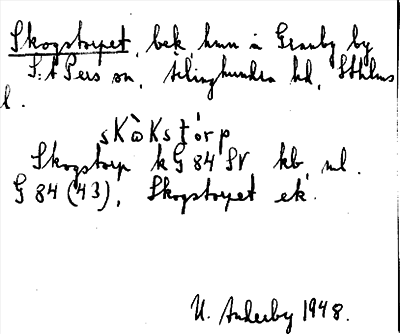 Skogstorpet, bek, hmn å Granby by
S:t Pers sn, Ärlinghundra hd, Sthlms
l.
skωkstorp
Skogstorp kG 84 SV kb, ml.
G 84 (43), Skogstorpet ek.
U. Anderby 1948.